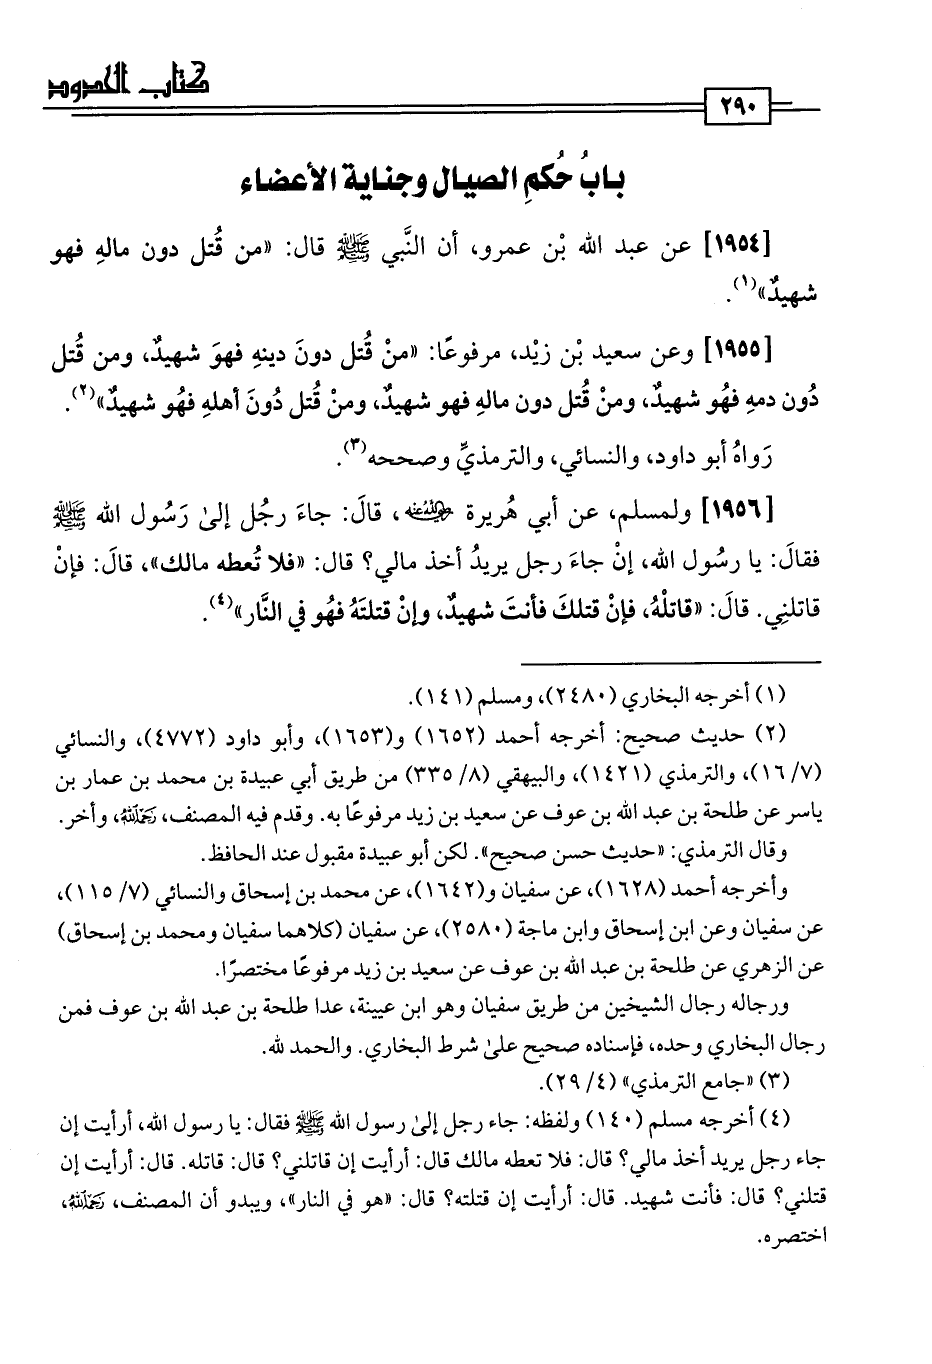 كتاب الحدود
٢٩٠
بابُ حُكمِ الصيال وجناية الأعضاء
[١٩٥٤] عن عبد الله بْن عمرو، أن النَّبي ﷺ قال: «من قُتل دون مالهِ فهو
شهيدٌ»(١).
[١٩٥٥] وعن سعيد بْن زيْد، مرفوعًا: «منْ قُتل دونَ دينهِ فهوَ شهيدٌ، ومن قُتل
دُون دمهِ فهُو شهيدٌ، ومنْ قُتل دون مالهِ فهو شهيدٌ، ومنْ قُتل دُونَ أهلهِ فهُو شهيدٌ»(٢).
رَواهُ أبو داود، والنسائي، والترمذيِّ وصححه(٣).
[١٩٥٦] ولمسلم، عن أبي هُريرة رضي الله عنه، قالَ: جاءَ رجُل إلىٰ رَسُول الله ﷺ
فقالَ: يا رسُول الله، إنْ جاءَ رجل يريدُ أخذ مالي؟ قال: «فلا تُعطه مالك»، قالَ: فإنْ
قاتلنِي. قالَ: «قاتلْهُ، فإنْ قتلكَ فأنتَ شهيدٌ، وإنْ قتلتَهُ فهُو في النَّار»(٤).
(١) أخرجه البخاري (٢٤٨٠)، ومسلم (١٤١).
(٢) حديث صحيح: أخرجه أحمد (١٦٥٢) و(١٦٥٣)، وأبو داود (٤٧٧٢)، والنسائي
(٧/ ١٦)، والترمذي (١٤٢١)، والبيهقي (٨/ ٣٣٥) من طريق أبي عبيدة بن محمد بن عمار بن
ياسر عن طلحة بن عبد الله بن عوف عن سعيد بن زيد مرفوعًا به. وقدم فيه المصنف، رحمه الله، وأخر.
وقال الترمذي: «حديث حسن صحيح». لكن أبو عبيدة مقبول عند الحافظ.
وأخرجه أحمد (١٦٢٨)، عن سفيان و(١٦٤٢)، عن محمد بن إسحاق والنسائي (٧/ ١١٥)،
عن سفيان وعن ابن إسحاق وابن ماجة (٢٥٨٠)، عن سفيان (كلاهما سفيان ومحمد بن إسحاق)
عن الزهري عن طلحة بن عبد الله بن عوف عن سعيد بن زيد مرفوعًا مختصرًا.
ورجاله رجال الشيخين من طريق سفيان وهو ابن عيينة، عدا طلحة بن عبد الله بن عوف فمن
رجال البخاري وحده، فإسناده صحيح علىٰ شرط البخاري. والحمد لله.
(٣) «جامع الترمذي» (٤/ ٢٩).
(٤) أخرجه مسلم (١٤٠) ولفظه: جاء رجل إلىٰ رسول الله ﷺ فقال: يا رسول الله، أرأيت إن
جاء رجل يريد أخذ مالي؟ قال: فلا تعطه مالك قال: أرأيت إن قاتلني؟ قال: قاتله. قال: أرأيت إن
قتلني؟ قال: فأنت شهيد. قال: أرأيت إن قتلته؟ قال: «هو في النار»، ويبدو أن المصنف، رحمه الله،
اختصره.